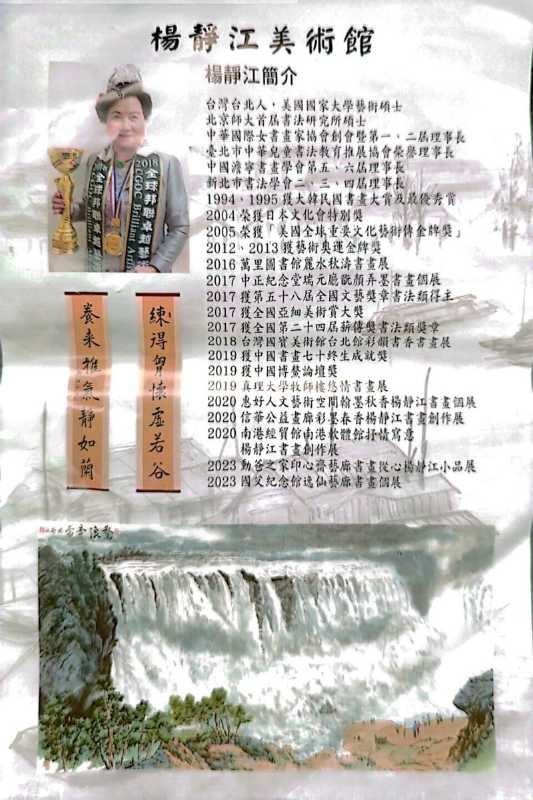 楊靜江美術館
楊靜江簡介
台灣台北人,美國國家大學藝術碩士
北京師大首屆書法研究所碩士
中華國際女書畫家協會創會暨第一、二屆理事長
臺北市中華兒童書法教育推展協會榮譽理事長
中國澹寧書畫學會第五、六屆理事長
新北市書法學會二、三、四屆理事長
1994、1995獲大韓民國書畫大賞及最優秀賞
2004榮獲日本文化會特別獎
2005榮獲「美國全球重要文化藝術傳金牌獎」
2012、2013獲藝術奧運金牌獎
2016萬里圖書館麗水秋濤書畫展
2017中正紀念堂瑞元廳歡顏弄墨書畫個展
2017獲第五十八屆全國文藝獎章書法類得主
2017獲全國亞細美術賞大獎
2017獲全國第二十四屆薪傳獎書法類獎章
2018台灣國寶美術館台北館彩韻書香書畫展
2019獲中國書畫七十終生成就獎
2019獲中國博鰲論壇獎
2019真理大學牧師樓悠情書畫展
2020惠好人文藝術空間翰墨秋香楊靜江書畫個展
2020信華公益畫廊彩墨春香楊靜江書畫創作展
2020南港經貿館南港軟體館抒情寫意
楊靜江書畫創作展
2023動爸之家印心齋藝廊書畫從心楊靜江小品展
2023國父紀念館逸仙藝廊書畫個展
2018
全球邦聯卓越藝
CGOC Brilliant Artis
練得胷懷虛若谷
養來雅氣靜如蘭